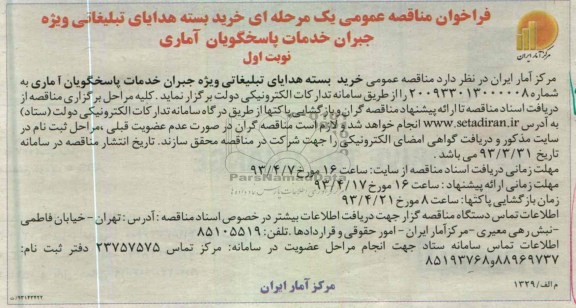 فراخوان مناقصه عمومی یک مرحله ای خرید بسته هدایای تبلیغاتی ویژه
جبران خدمات پاسخگویان آماری
نوبت اول
مرکز آمار ایران
مرکز آمار ایران در نظر دارد مناقصه عمومی خرید بسته هدایای تبلیغاتی ویژه جبران خدمات پاسخگویان آماری به
شماره ۲۰۰۹۳۳۰۱۳۰۰۰۰۰۸ را از طریق سامانه تدارکات الکترونیکی دولت برگزار نماید. کلیه مراحل برگزاری مناقصه از
دریافت اسناد مناقصه تا ارائه پیشنهاد مناقصه گران و بازگشایی پاکتها از طریق درگاه سامانه تدارکات الکترونیکی دولت (ستاد)
به آدرس www.setadiran.ir انجام خواهد شد و لازم است مناقصه گران در صورت عدم عضویت قبلی، مراحل ثبت نام در
سایت مذکور و دریافت گواهی امضای الکترونیکی را جهت شرکت در مناقصه محقق سازند. تاریخ انتشار مناقصه در سامانه
تاریخ ۹۳/۳/۳۱ می باشد.
مهلت زمانی دریافت اسناد مناقصه از سایت: ساعت ۱۶ مورخ ۹۳/۴/۷
مهلت زمانی ارائه پیشنهاد: ساعت ۱۶ مورخ ۹۳/۴/۱۷
زمان بازگشایی پاکتها: ساعت ۸ مورخ ۹۳/۴/۲۱
اطلاعات تماس دستگاه مناقصه گزار جهت دریافت اطلاعات بیشتر در خصوص اسناد مناقصه: آدرس: تهران - خیابان فاطمی
- نبش رهی معیری - مرکز آمار ایران - امور حقوقی و قراردادها. تلفن: ۸۵۱۰۵۵۱۹
اطلاعات تماس سامانه ستاد جهت انجام مراحل عضویت در سامانه: مرکز تماس ۲۳۷۵۷۵۷۵ دفتر ثبت نام:
۸۸۹۶۹۷۳۷ و ۸۵۱۹۳۷۶۸
مرکز آمار ایران
م الف/۱۳۲۹
ParsNamadData